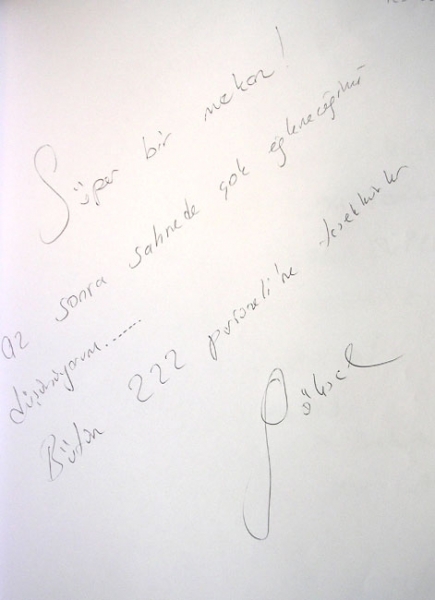 Süper bir mekan!
Az sonra sahnede çok eğleneceğimi
düşünüyorum......
Bütün 222 personeli'ne teşekkürler
Göksel